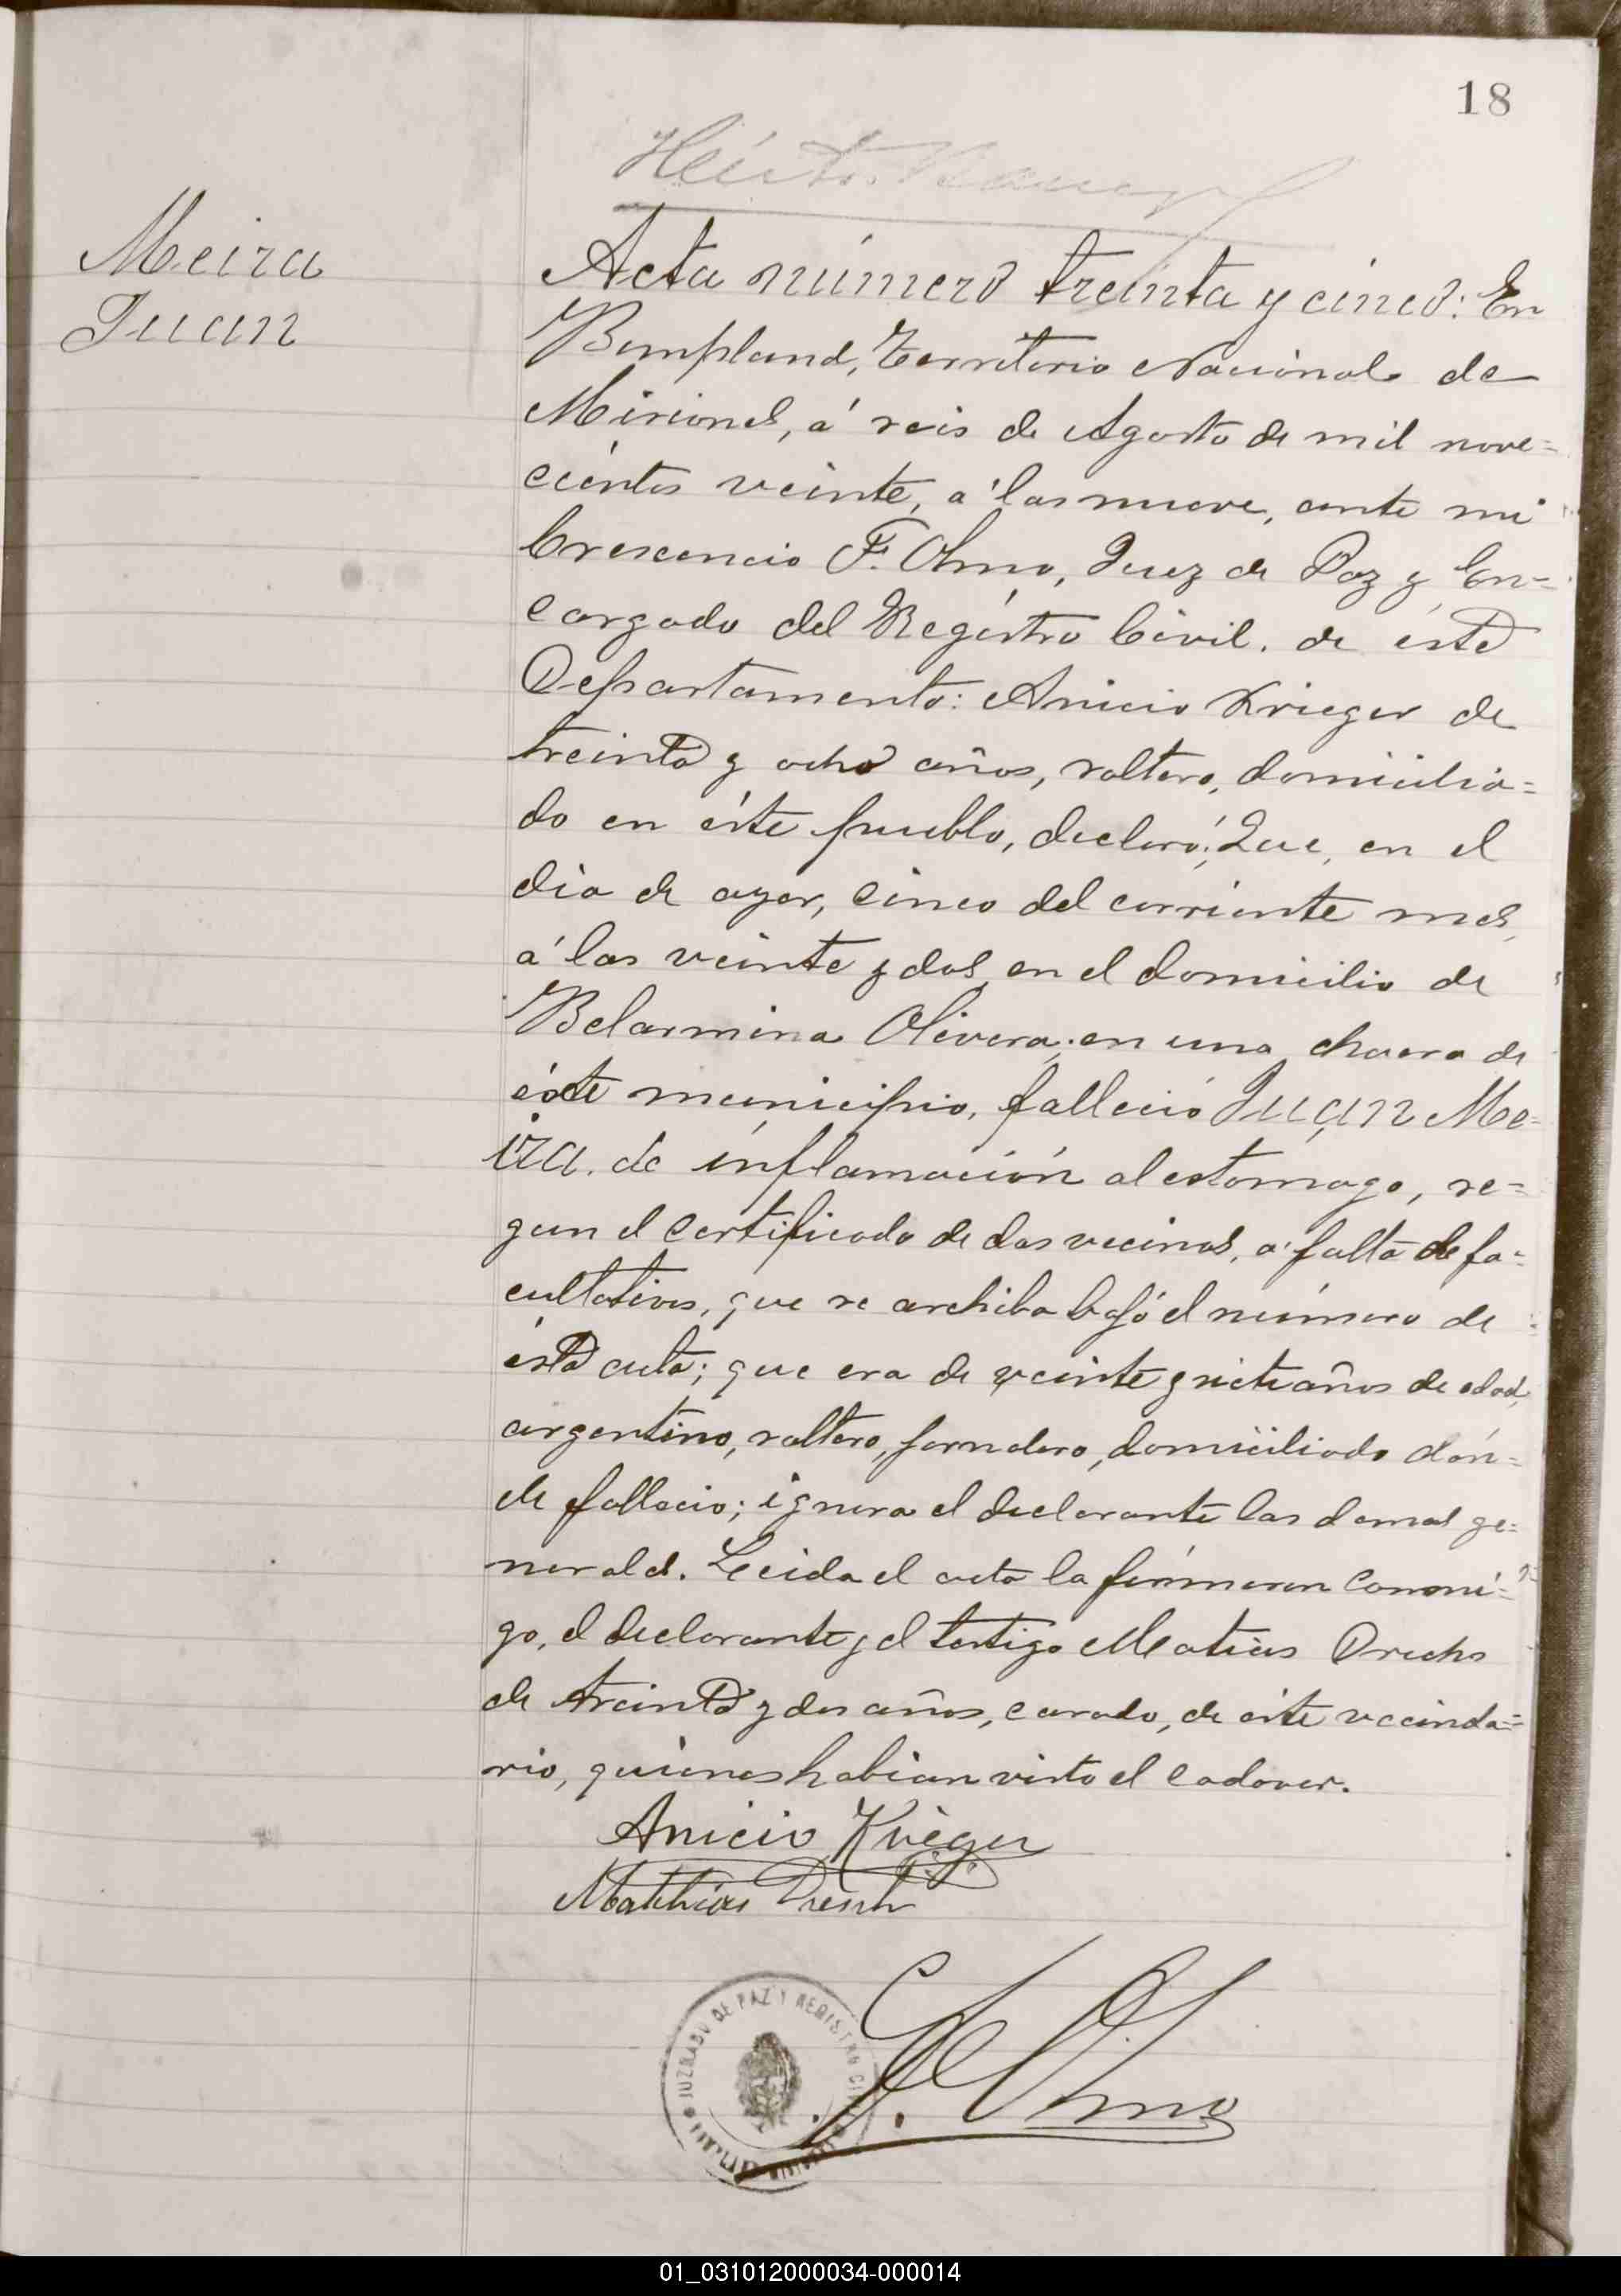 18
Meira
Juan
Acta número treinta y cinco: En
Bompland, Territorio Nacional de
Misiones, á seis de Agosto de mil nove=
cientos veinte, a' las nueve, ante mi
Crescencio F. Olmo, Juez de Paz y En=
cargado del Registro Civil. de éste
Departamento: Anicio Krieger de
treinta y ocho años, soltero, domicilia=
do en éste pueblo, declaró: Que, en el
dia de ayer, cinco del corriente mes,
a' las veinte y dos, en el domicilio de
Belarmina Olivera; en una chacra de
éste municipio, falleció Juan Me=
ira. de inflamación al estomago, se=
gun el certificado de dos vecinos, a' falta de fa=
cultativos, que se archiba bajó el número de
ésta acta; que era de veinte y siete años de edad,
argentino, soltero, jornalero, domiciliado dón=
de fallecio; ignora el declarante las demas ge=
nerales. Leida el acta la firmaron conmi=
go, el declarante y el testigo Matias Drechs
de treinta y dos años, casado, de éste vecinda=
rio, quienes habian visto el cadaver.
Anicio Krieger
Matthias Dresch
F. Olmo
JUZGADO DE PAZ Y REGISTRO CIVIL
01_031012000034-000014